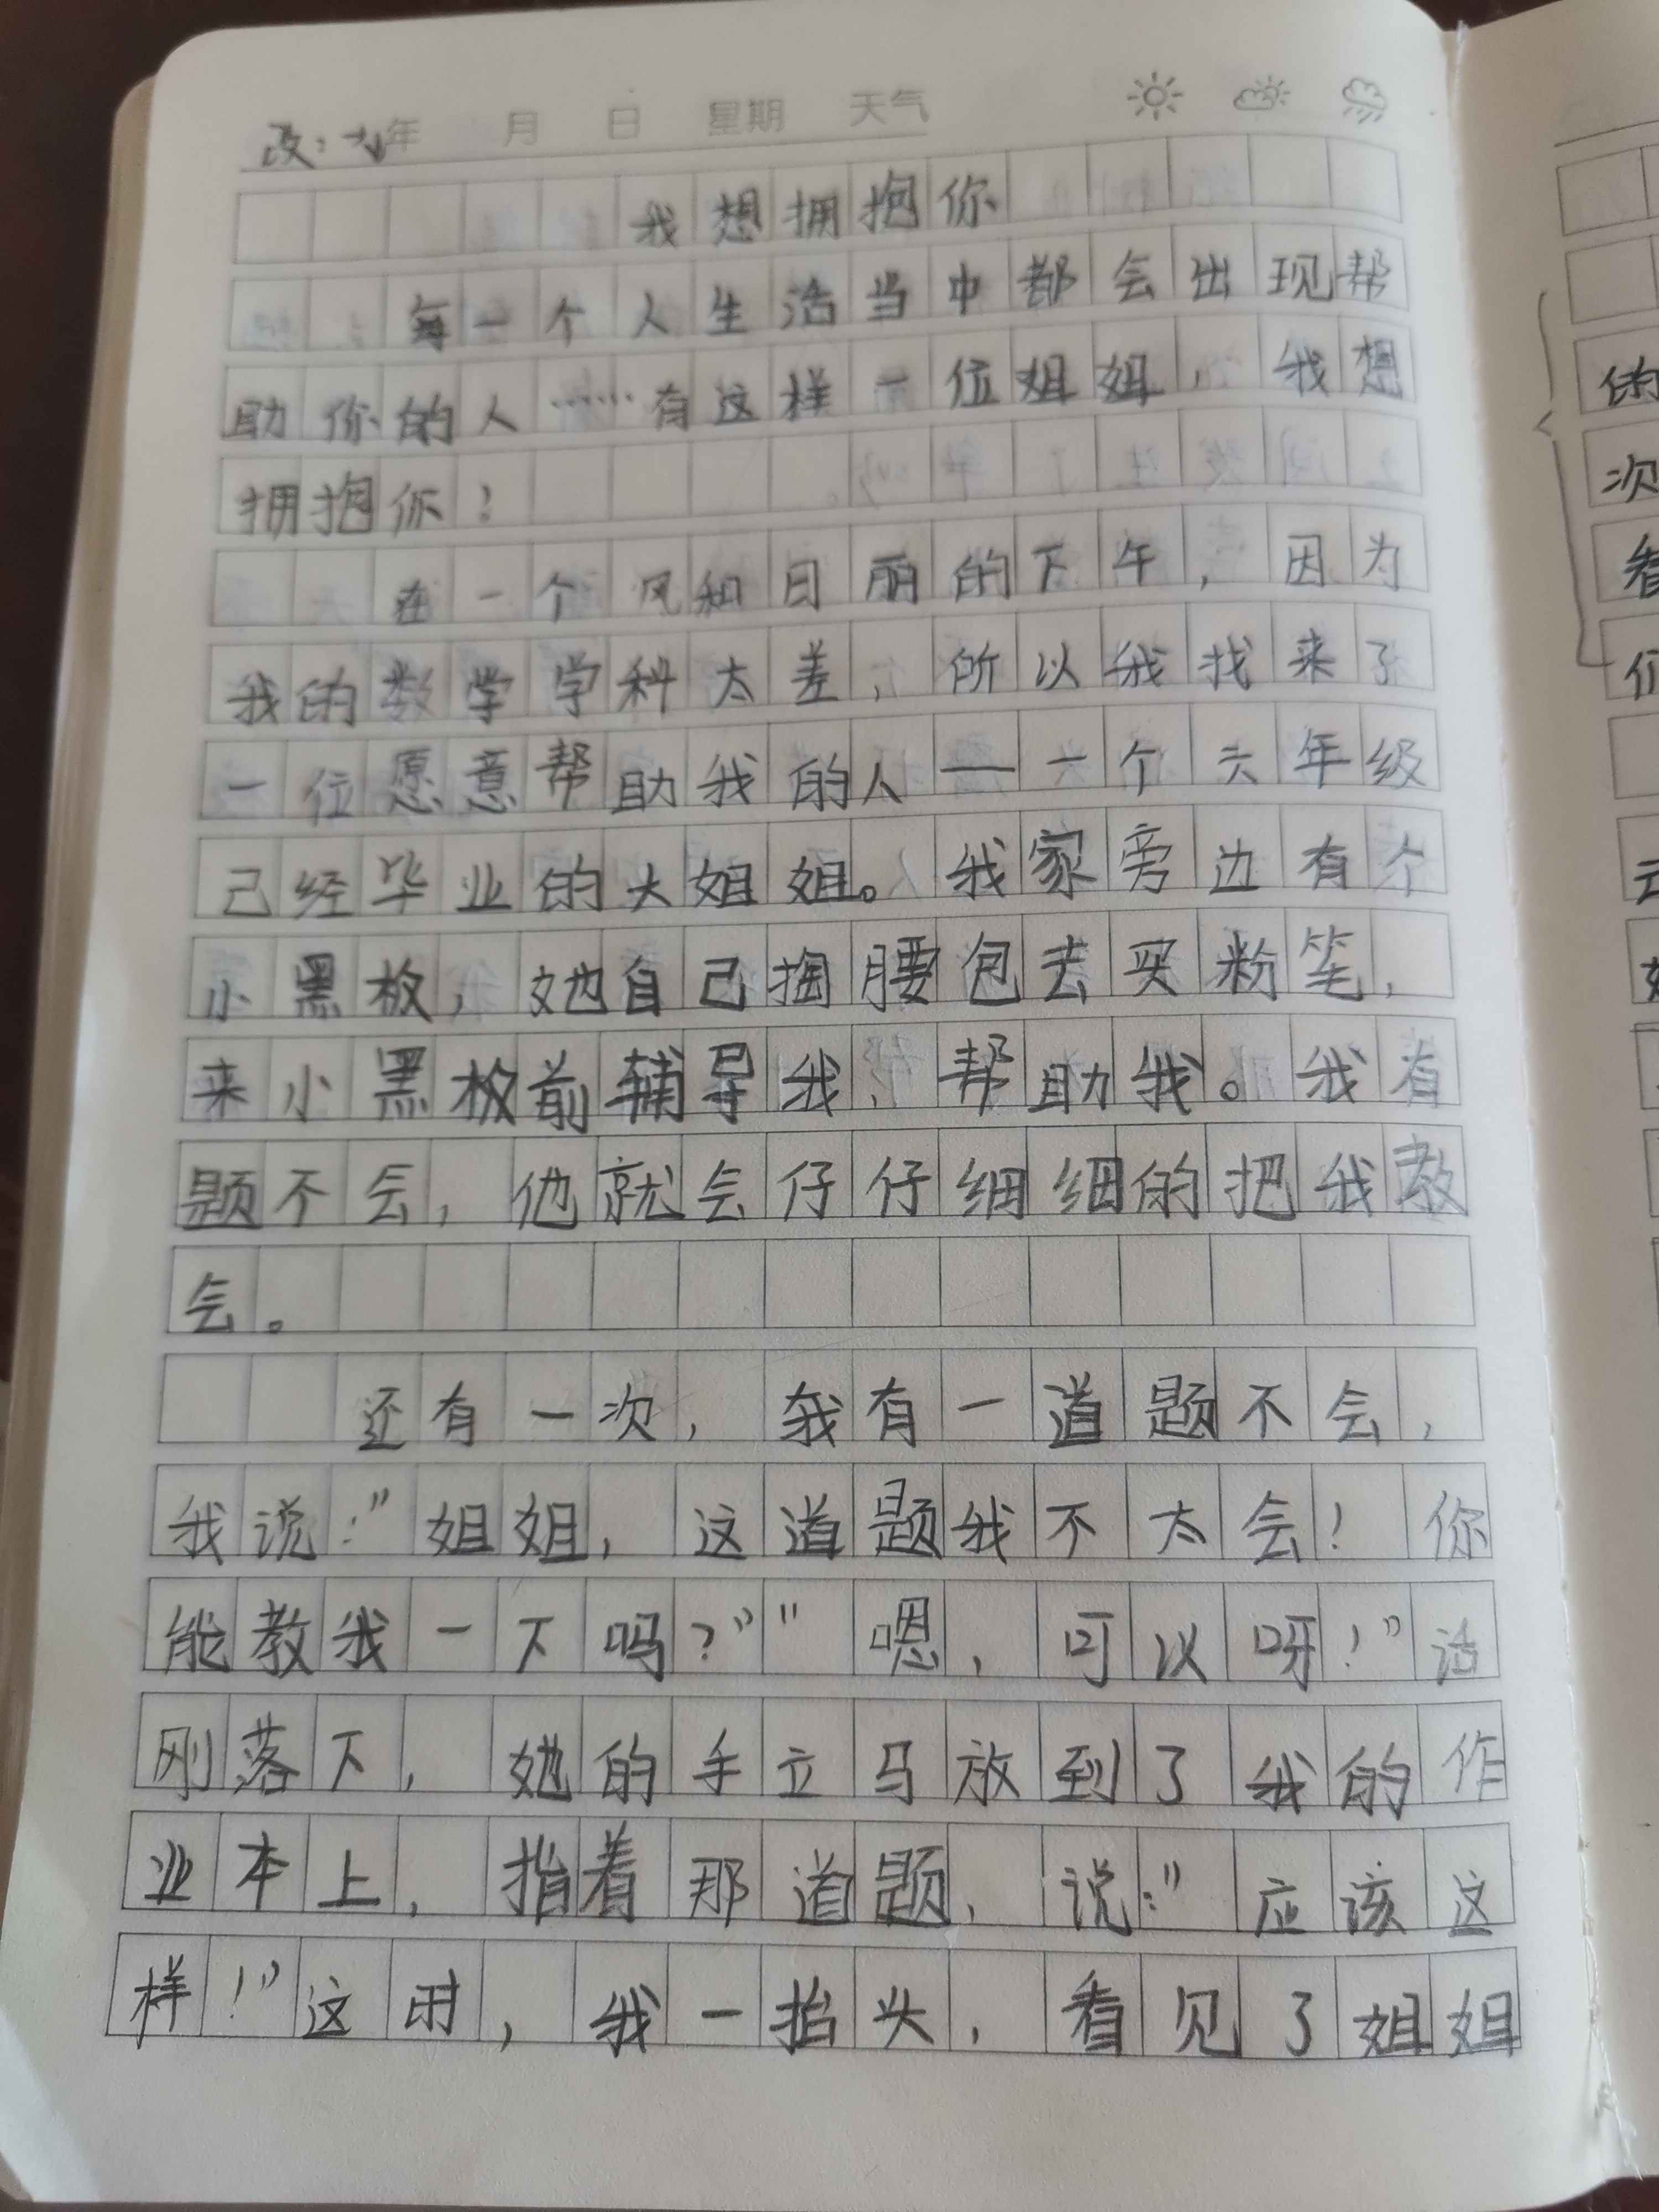 改:九年 月 日 星期 天气
我想拥抱你
每一个人生活当中都会出现帮
助你的人……有这样一位姐姐，我想
拥抱你！
在一个风和日丽的下午，因为
我的数学学科太差，所以我找来了
一位愿意帮助我的人——一个六年级
己经毕业的大姐姐。我家旁边有个
小黑板，她自己掏腰包去买粉笔，
来小黑板前辅导我、帮助我。我有
题不会，他就会仔仔细细的把我教
会。
还有一次，我有一道题不会，
我说："姐姐，这道题我不太会！你
能教我一下吗？""嗯，可以呀！"话
刚落下，她的手立马放到了我的作
业本上，指着那道题，说："应该这
样！"这时，我一抬头，看见了姐姐
的
次
看
们